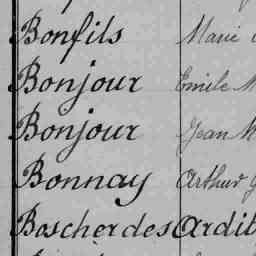 Bonfils Marie
Bonjour Emile M
Bonjour Jean M
Bonnay Arthur G
Boscher des Ardil